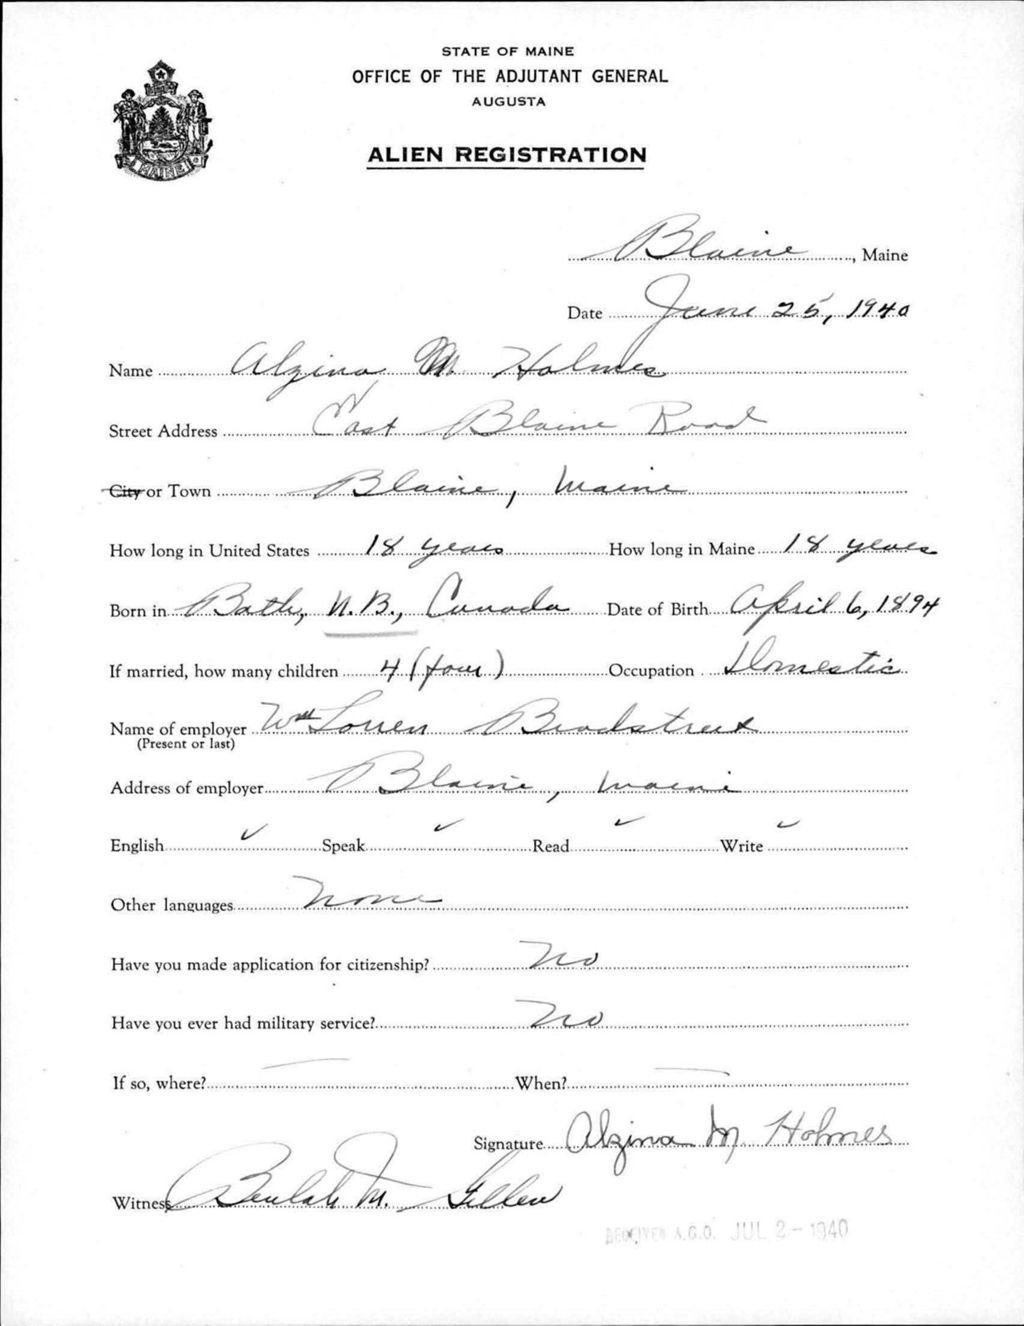 STATE OF MAINE
OFFICE OF THE ADJUTANT GENERAL
AUGUSTA
MAINE
ALIEN REGISTRATION
Blaine, Maine
Date June 25, 1940
Name Alzina M Holmes
Street Address East Blaine Road
City or Town Blaine, Maine
How long in United States 18 years How long in Maine 18 years
Born in Bath, N.B., Canada Date of Birth April 6, 1894
If married, how many children 4 (four) Occupation Domestic
Name of employer Wm Loren Bradstreet
(Present or last)
Address of employer Blaine, Maine
English ✓ Speak ✓ Read ✓ Write ✓
Other languages None
Have you made application for citizenship? No
Have you ever had military service? No
If so, where? — When? —
Signature Alzina M Holmes
Witness Beulah M.
RECEIVED A.G.O. JUL 2 - 1940